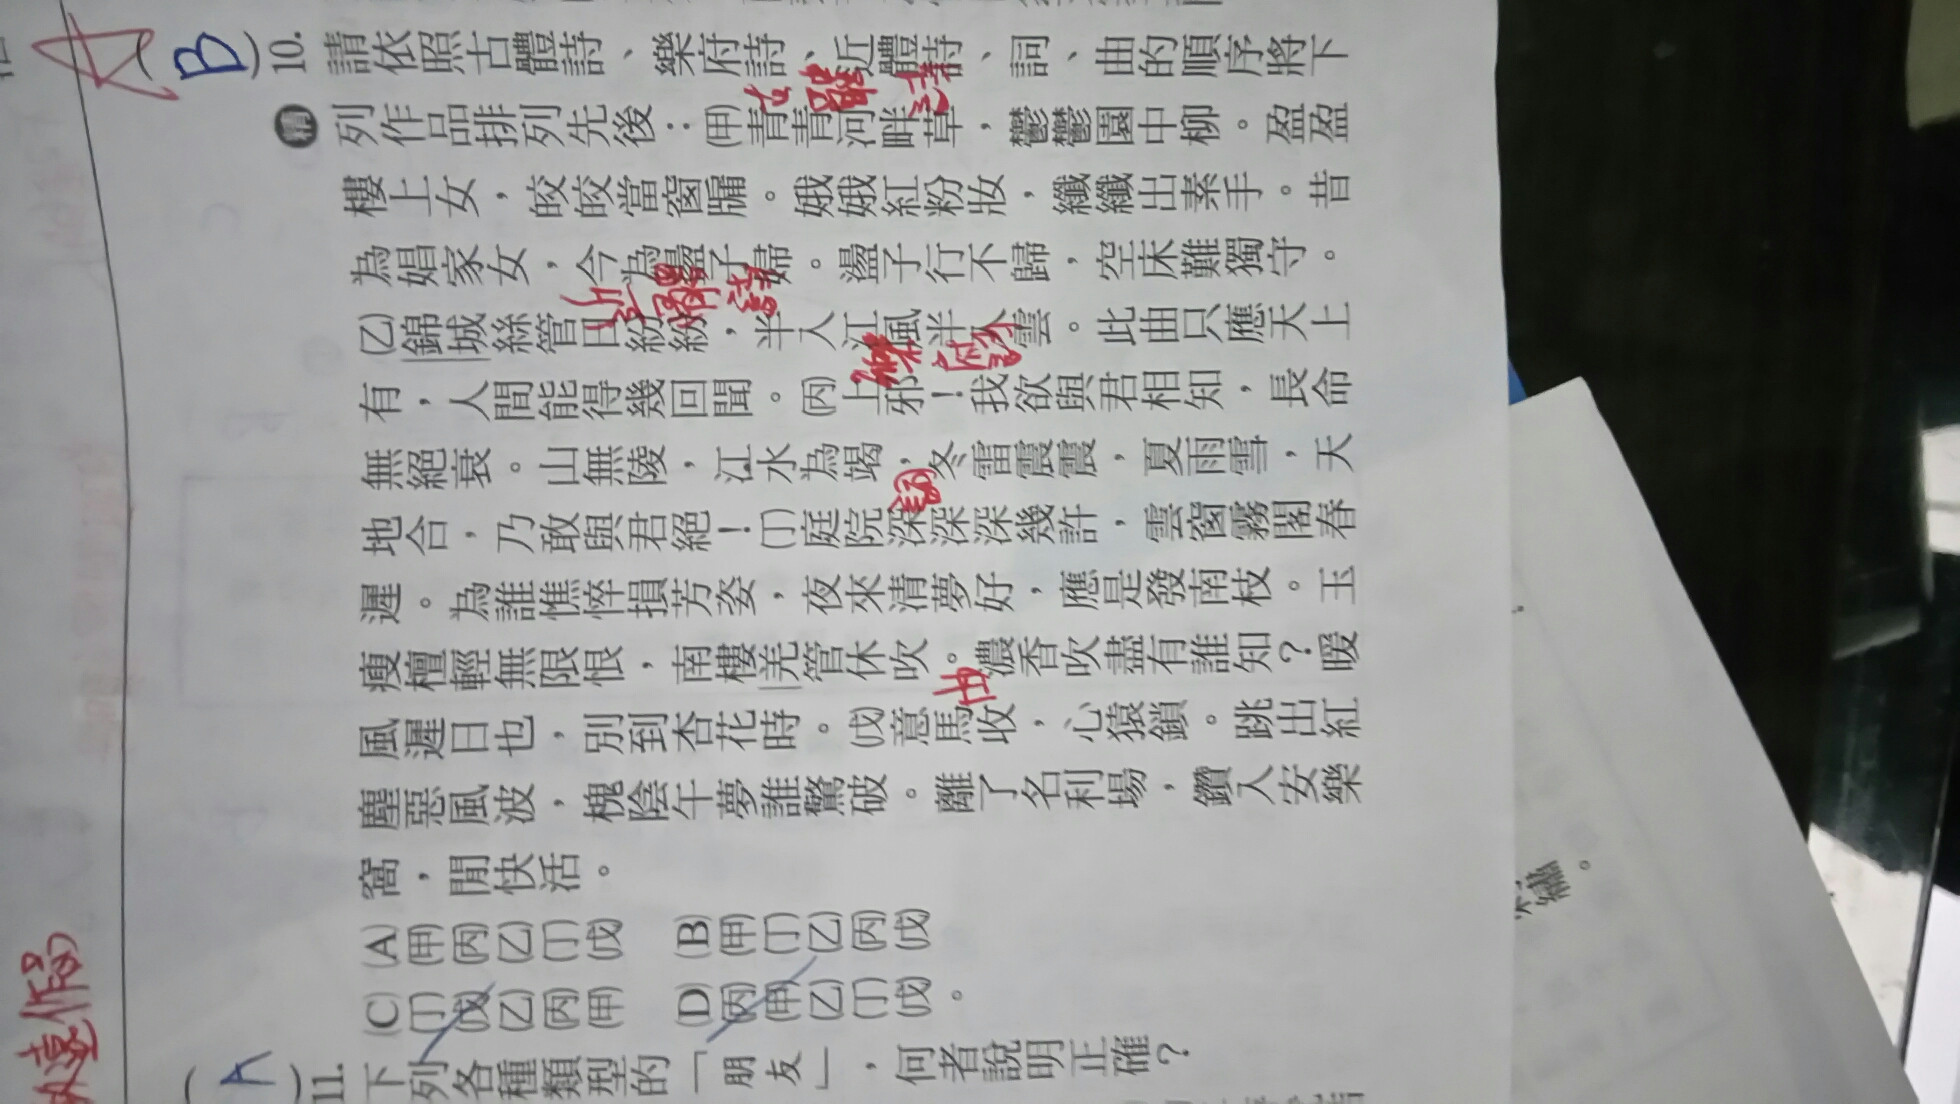 A
(B)10.請依照古體詩、樂府詩、近體詩、詞、曲的順序將下
精 列作品排列先後：(甲)青青河畔草，鬱鬱園中柳。盈盈
古體詩
樓上女，皎皎當窗牖。娥娥紅粉妝，纖纖出素手。昔
為娼家女，今為蕩子婦。盪子行不歸，空床難獨守。
近體詩
(乙)錦城絲管日紛紛，半入江風半入雲。此曲只應天上
樂府詩
有，人間能得幾回聞。(丙)上邪！我欲與君相知，長命
無絕衰。山無陵，江水為竭，冬雷震震，夏雨雪，天
詞
地合，乃敢與君絕！(丁)庭院深深深幾許，雲窗霧閣春
遲。為誰憔悴損芳姿，夜來清夢好，應是發南枝。玉
瘦檀輕無限恨，南樓羌管休吹。濃香吹盡有誰知？暖
曲
風遲日也，別到杏花時。(戊)意馬收，心猿鎖。跳出紅
塵惡風波，槐陰午夢誰驚破。離了名利場，鑽入安樂
窩，閒快活。
(A)(甲)(丙)(乙)(丁)(戊) (B)(甲)(丁)(乙)(丙)(戊)
(C)(丁)(戊)(乙)(丙)(甲) (D)(丙)(甲)(乙)(丁)(戊)。
(A)11.下列各種類型的「朋友」，何者說明正確？